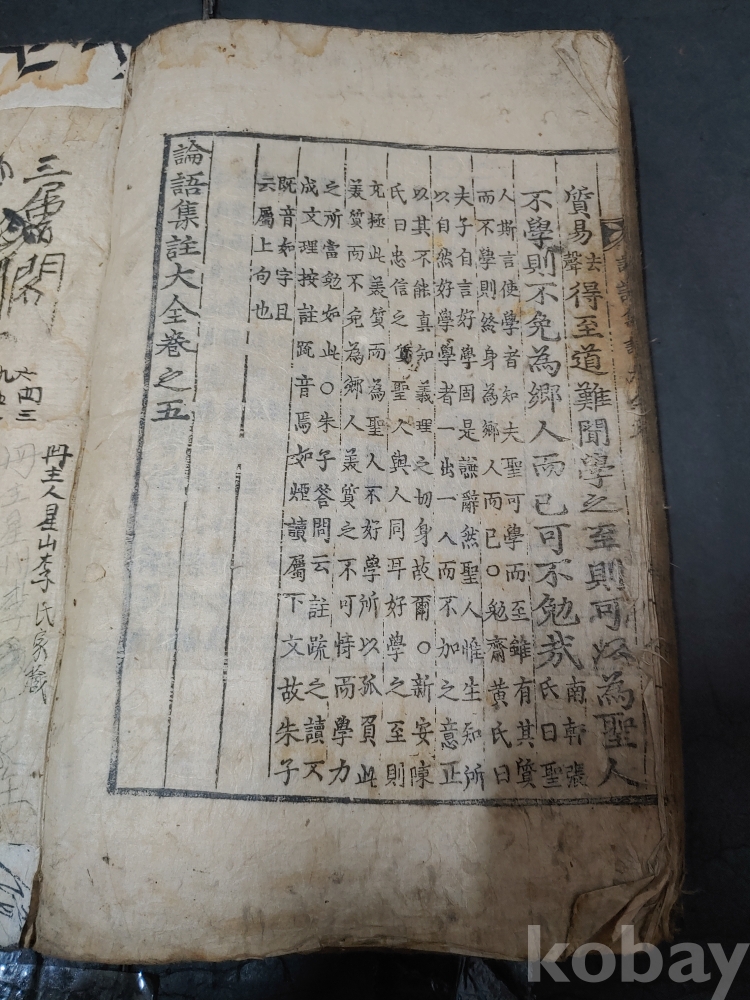 質易去聲得至道難聞學之至則可以為聖人
不學則不免為鄉人而已可不勉哉南軒張
氏曰聖
人斯言使學者知夫聖可學而至雖有其質
而不學則終身為鄉人而已○勉齋黃氏曰
夫子自言好學固是謙辭然聖人惟生知所
以自然好學學者一出一入而不加之意正
以其不能真知義理之切身故爾○新安陳
氏曰忠信之質聖人與人同耳好學之至則
充極此美質而為聖人不好學所以孤負此
美質而不免為鄉人美質之不可恃而學力
之所當勉如此○朱子答問云註疏之讀又
成文理按註疏音焉如煙讀屬下文故朱子
既音如字且
云屬上句也
論語集註大全卷之五
冊主人星山李氏家藏
kobay